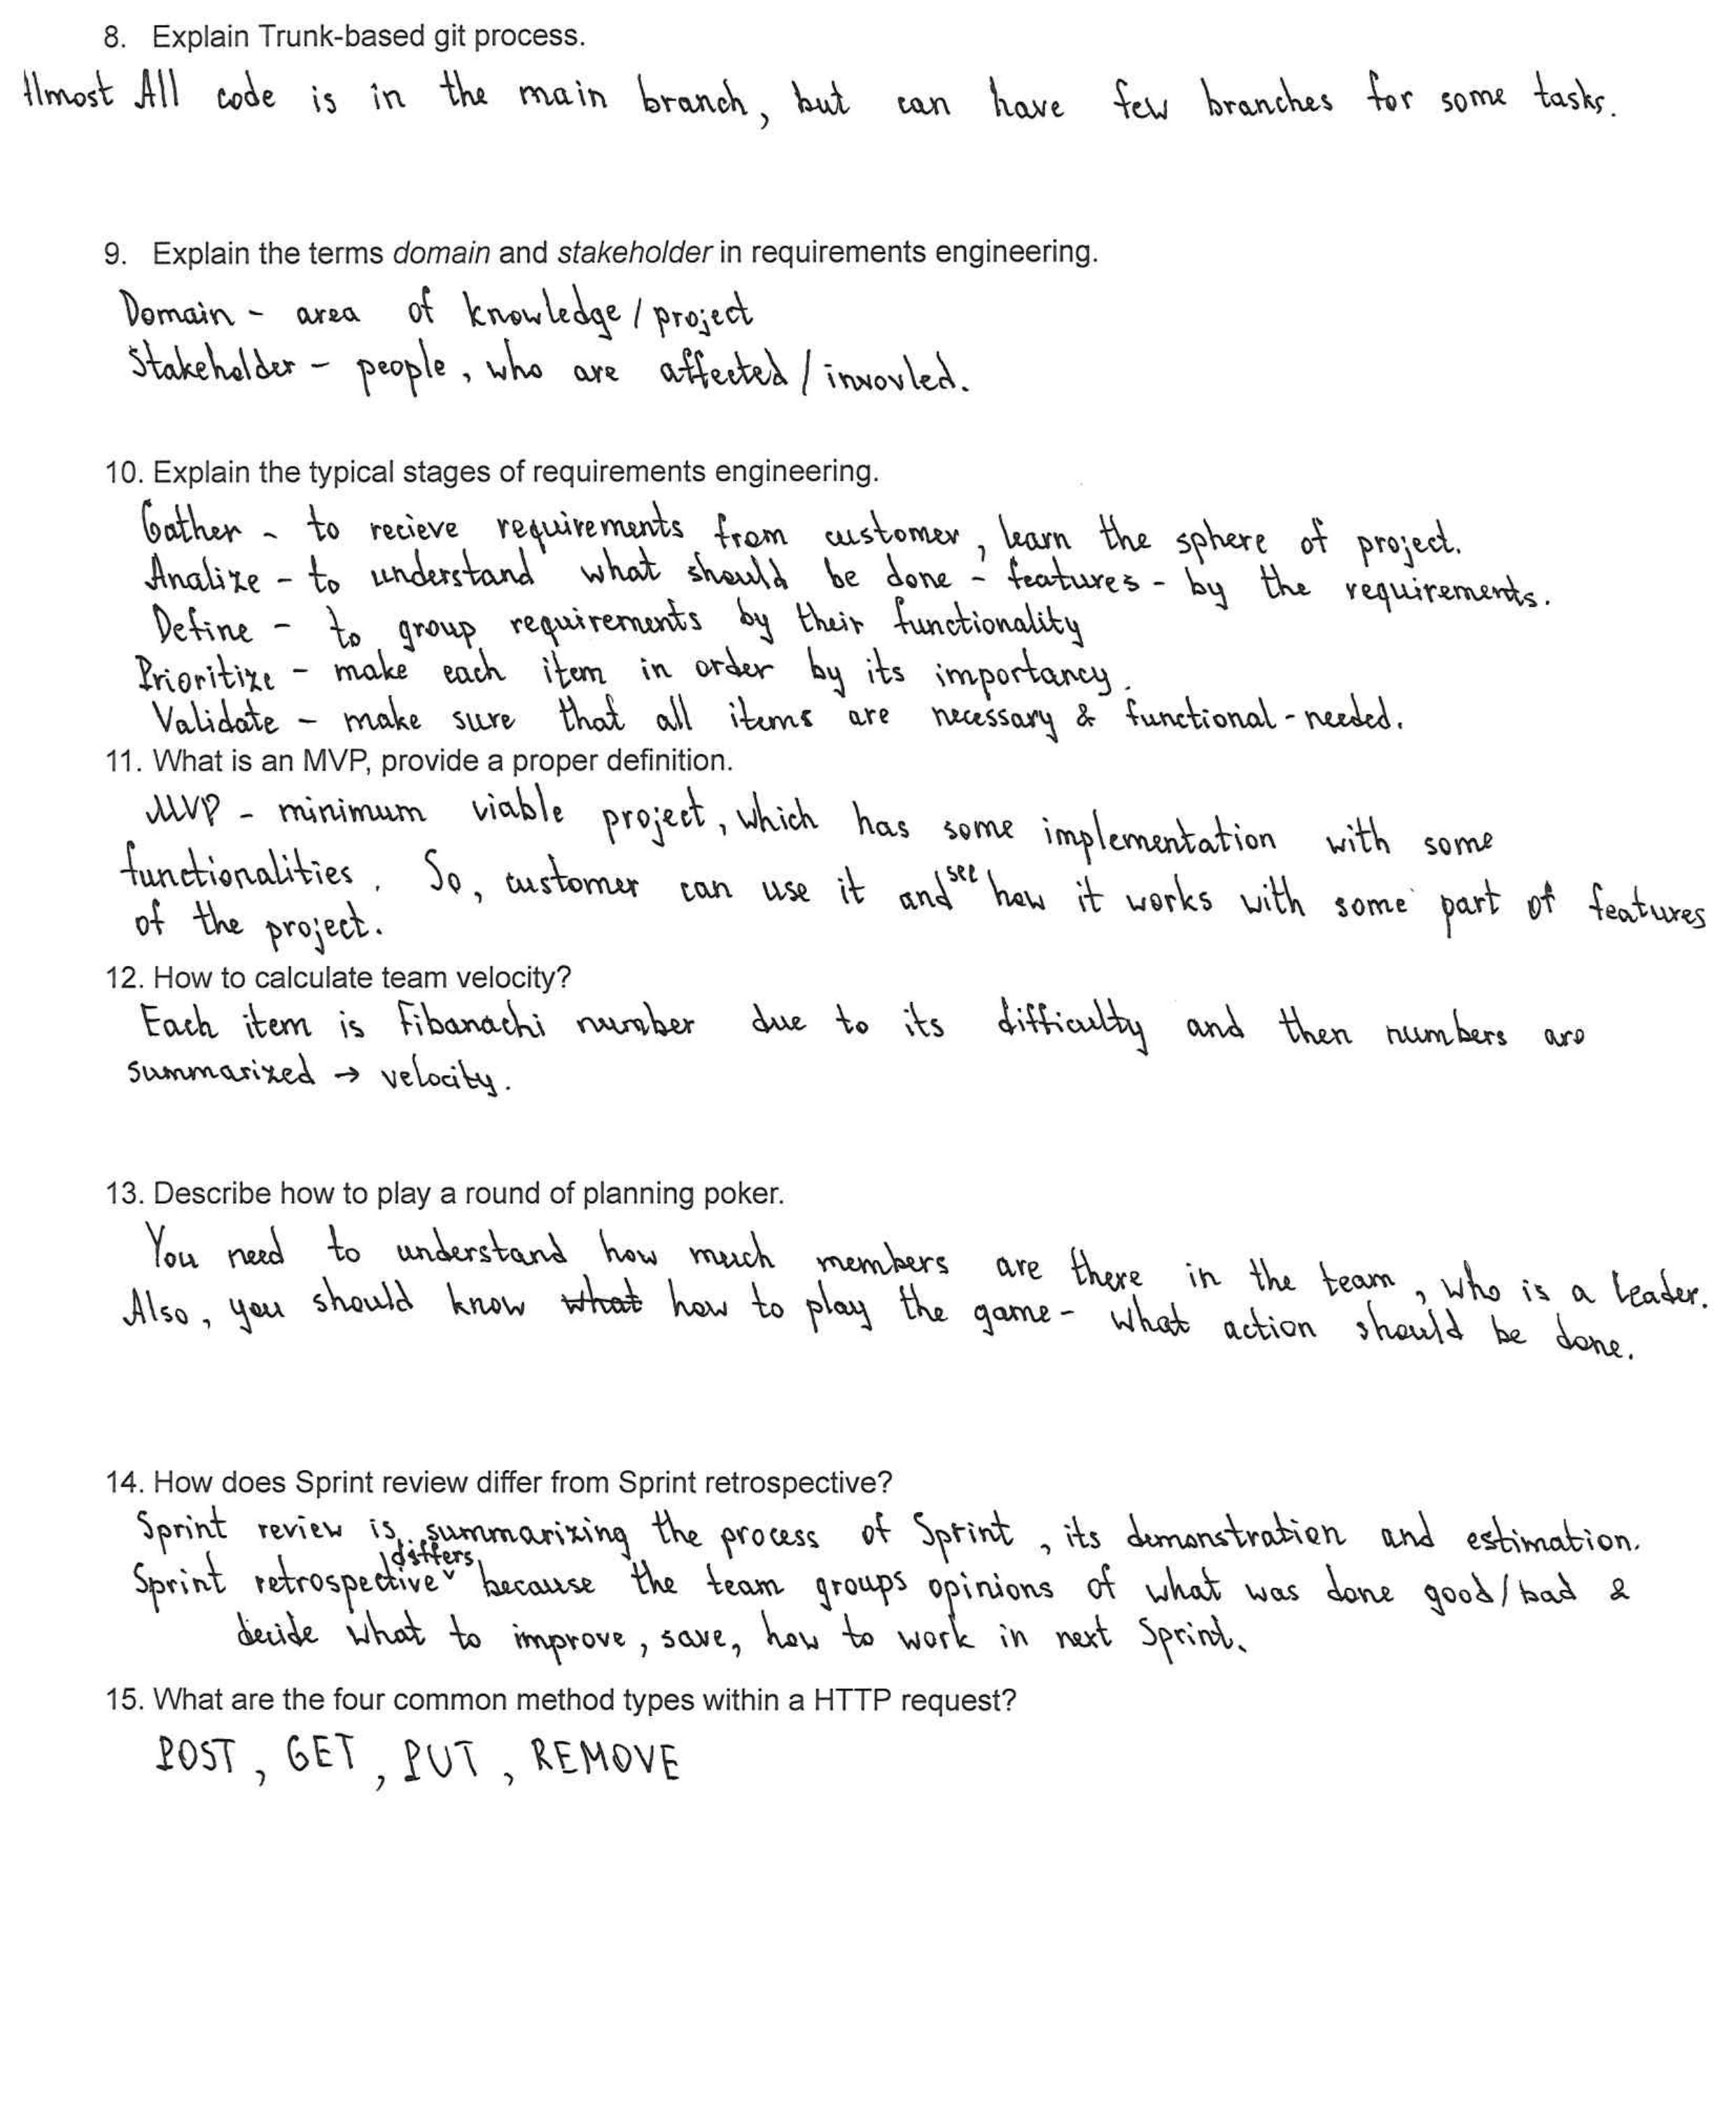 8. Explain Trunk-based git process.
Almost All code is in the main branch, but can have few branches for some tasks.
9. Explain the terms domain and stakeholder in requirements engineering.
Domain - area of knowledge / project
Stakeholder - people, who are affected / invovled.
10. Explain the typical stages of requirements engineering.
Gather - to recieve requirements from customer, learn the sphere of project.
Analize - to understand what should be done - features - by the requirements.
Define - to group requirements by their functionality
Prioritize - make each item in order by its importancy.
Validate - make sure that all items are necessary & functional-needed.
11. What is an MVP, provide a proper definition.
MVP - minimum viable project, which has some implementation with some
functionalities. So, customer can use it and see how it works with some part of features
of the project.
12. How to calculate team velocity?
Each item is Fibanachi number due to its difficulty and then numbers are
summarized → velocity.
13. Describe how to play a round of planning poker.
You need to understand how much members are there in the team, who is a leader.
Also, you should know what how to play the game - what action should be done.
14. How does Sprint review differ from Sprint retrospective?
Sprint review is summarizing the process of Sprint, its demonstration and estimation.
Sprint retrospective differs because the team groups opinions of what was done good/bad &
decide what to improve, save, how to work in next Sprint.
15. What are the four common method types within a HTTP request?
POST, GET, PUT, REMOVE